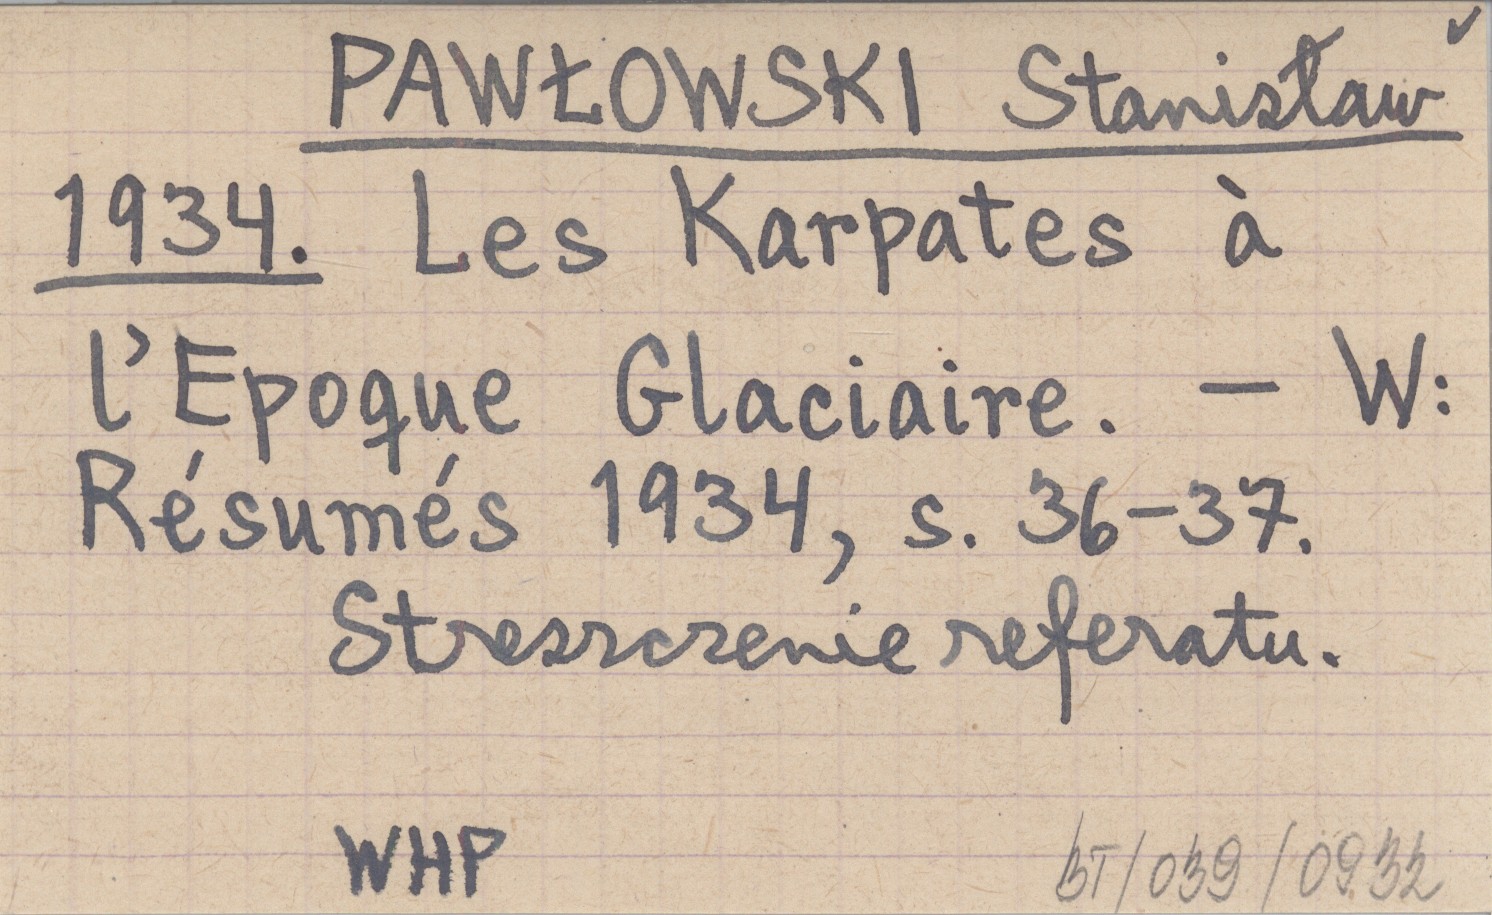 PAWŁOWSKI Stanisław
1934. Les Karpates à
l'Epoque Glaciaire. — W:
Résumés 1934, s. 36-37.
Streszczenie referatu.
WHP
BT/039/0932